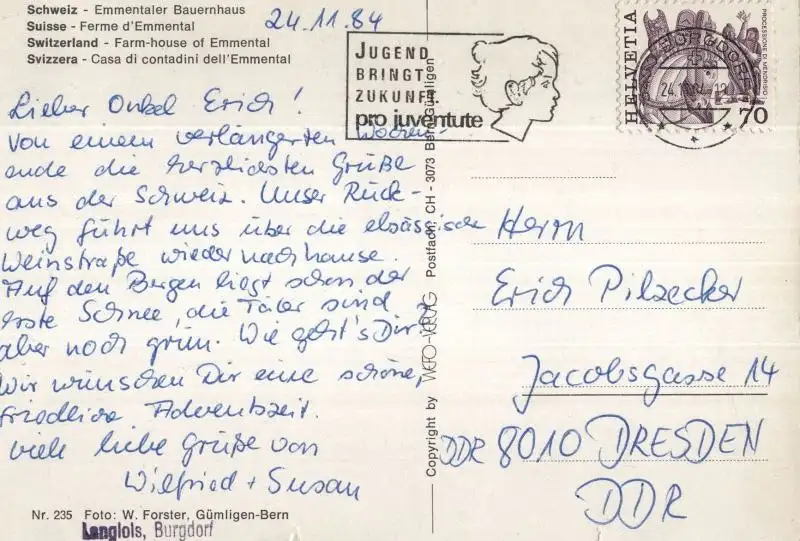 Schweiz - Emmentaler Bauernhaus
Suisse - Ferme d'Emmental
Switzerland - Farm-house of Emmental
Svizzera - Casa di contadini dell'Emmental
24.11.84
Lieber Onkel Erich!
Von einem verlängerten Wochen-
ende die herzlichsten Grüße
aus der Schweiz. Unser Rück-
weg führt uns über die elsässische
Weinstraße wieder nachhause.
Auf den Bergen liegt schon der
erste Schnee, die Täler sind
aber noch grün. Wie geht's Dir?
Wir wünschen Dir eine schöne,
friedliche Adventszeit.
Viele liebe Grüße von
Wilfried + Susan
Nr. 235 Foto: W. Forster, Gümligen-Bern
Langlois, Burgdorf
Copyright by WEFO-VERLAG Postfach, CH - 3073 Bern-Gümligen
JUGEND
BRINGT
ZUKUNFT.
pro juventute
HELVETIA
PROCESSIONE DI MENDRISIO
70
BURGDORF
Herrn
Erich Pilzecker
Jacobsgasse 14
DDR 8010 DRESDEN
DDR